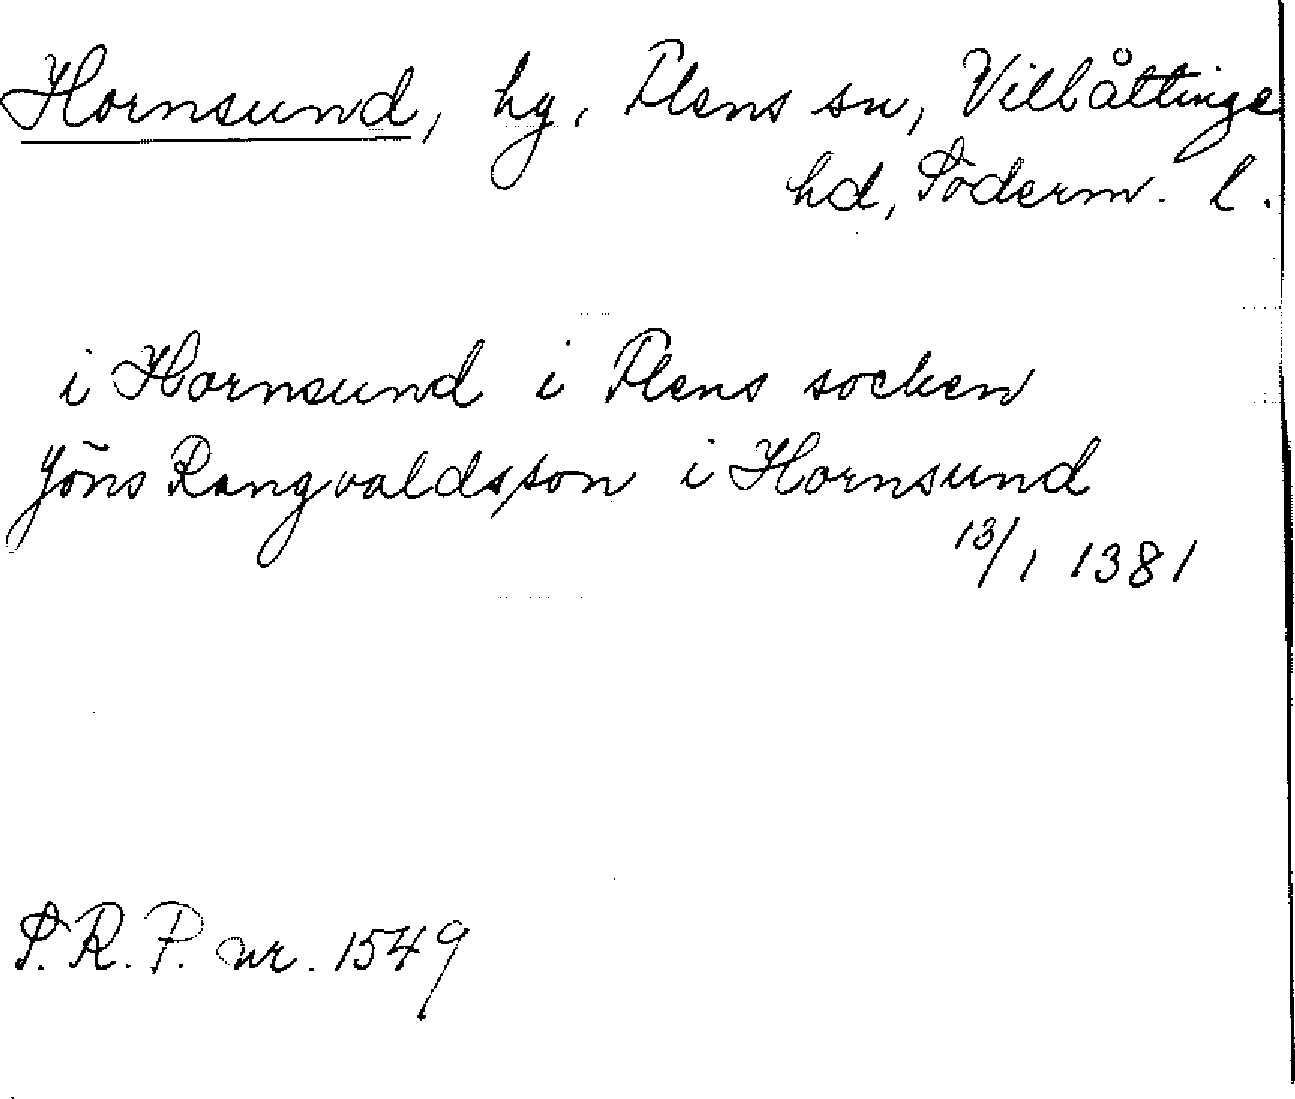 Hornsund, hg, Flens sn, Villåttinge
hd, Söderm. l.
i Hornsund i Flens socken
Jöns Rangvaldsson i Hornsund
13/1 1381
S.R.P. nr. 1549